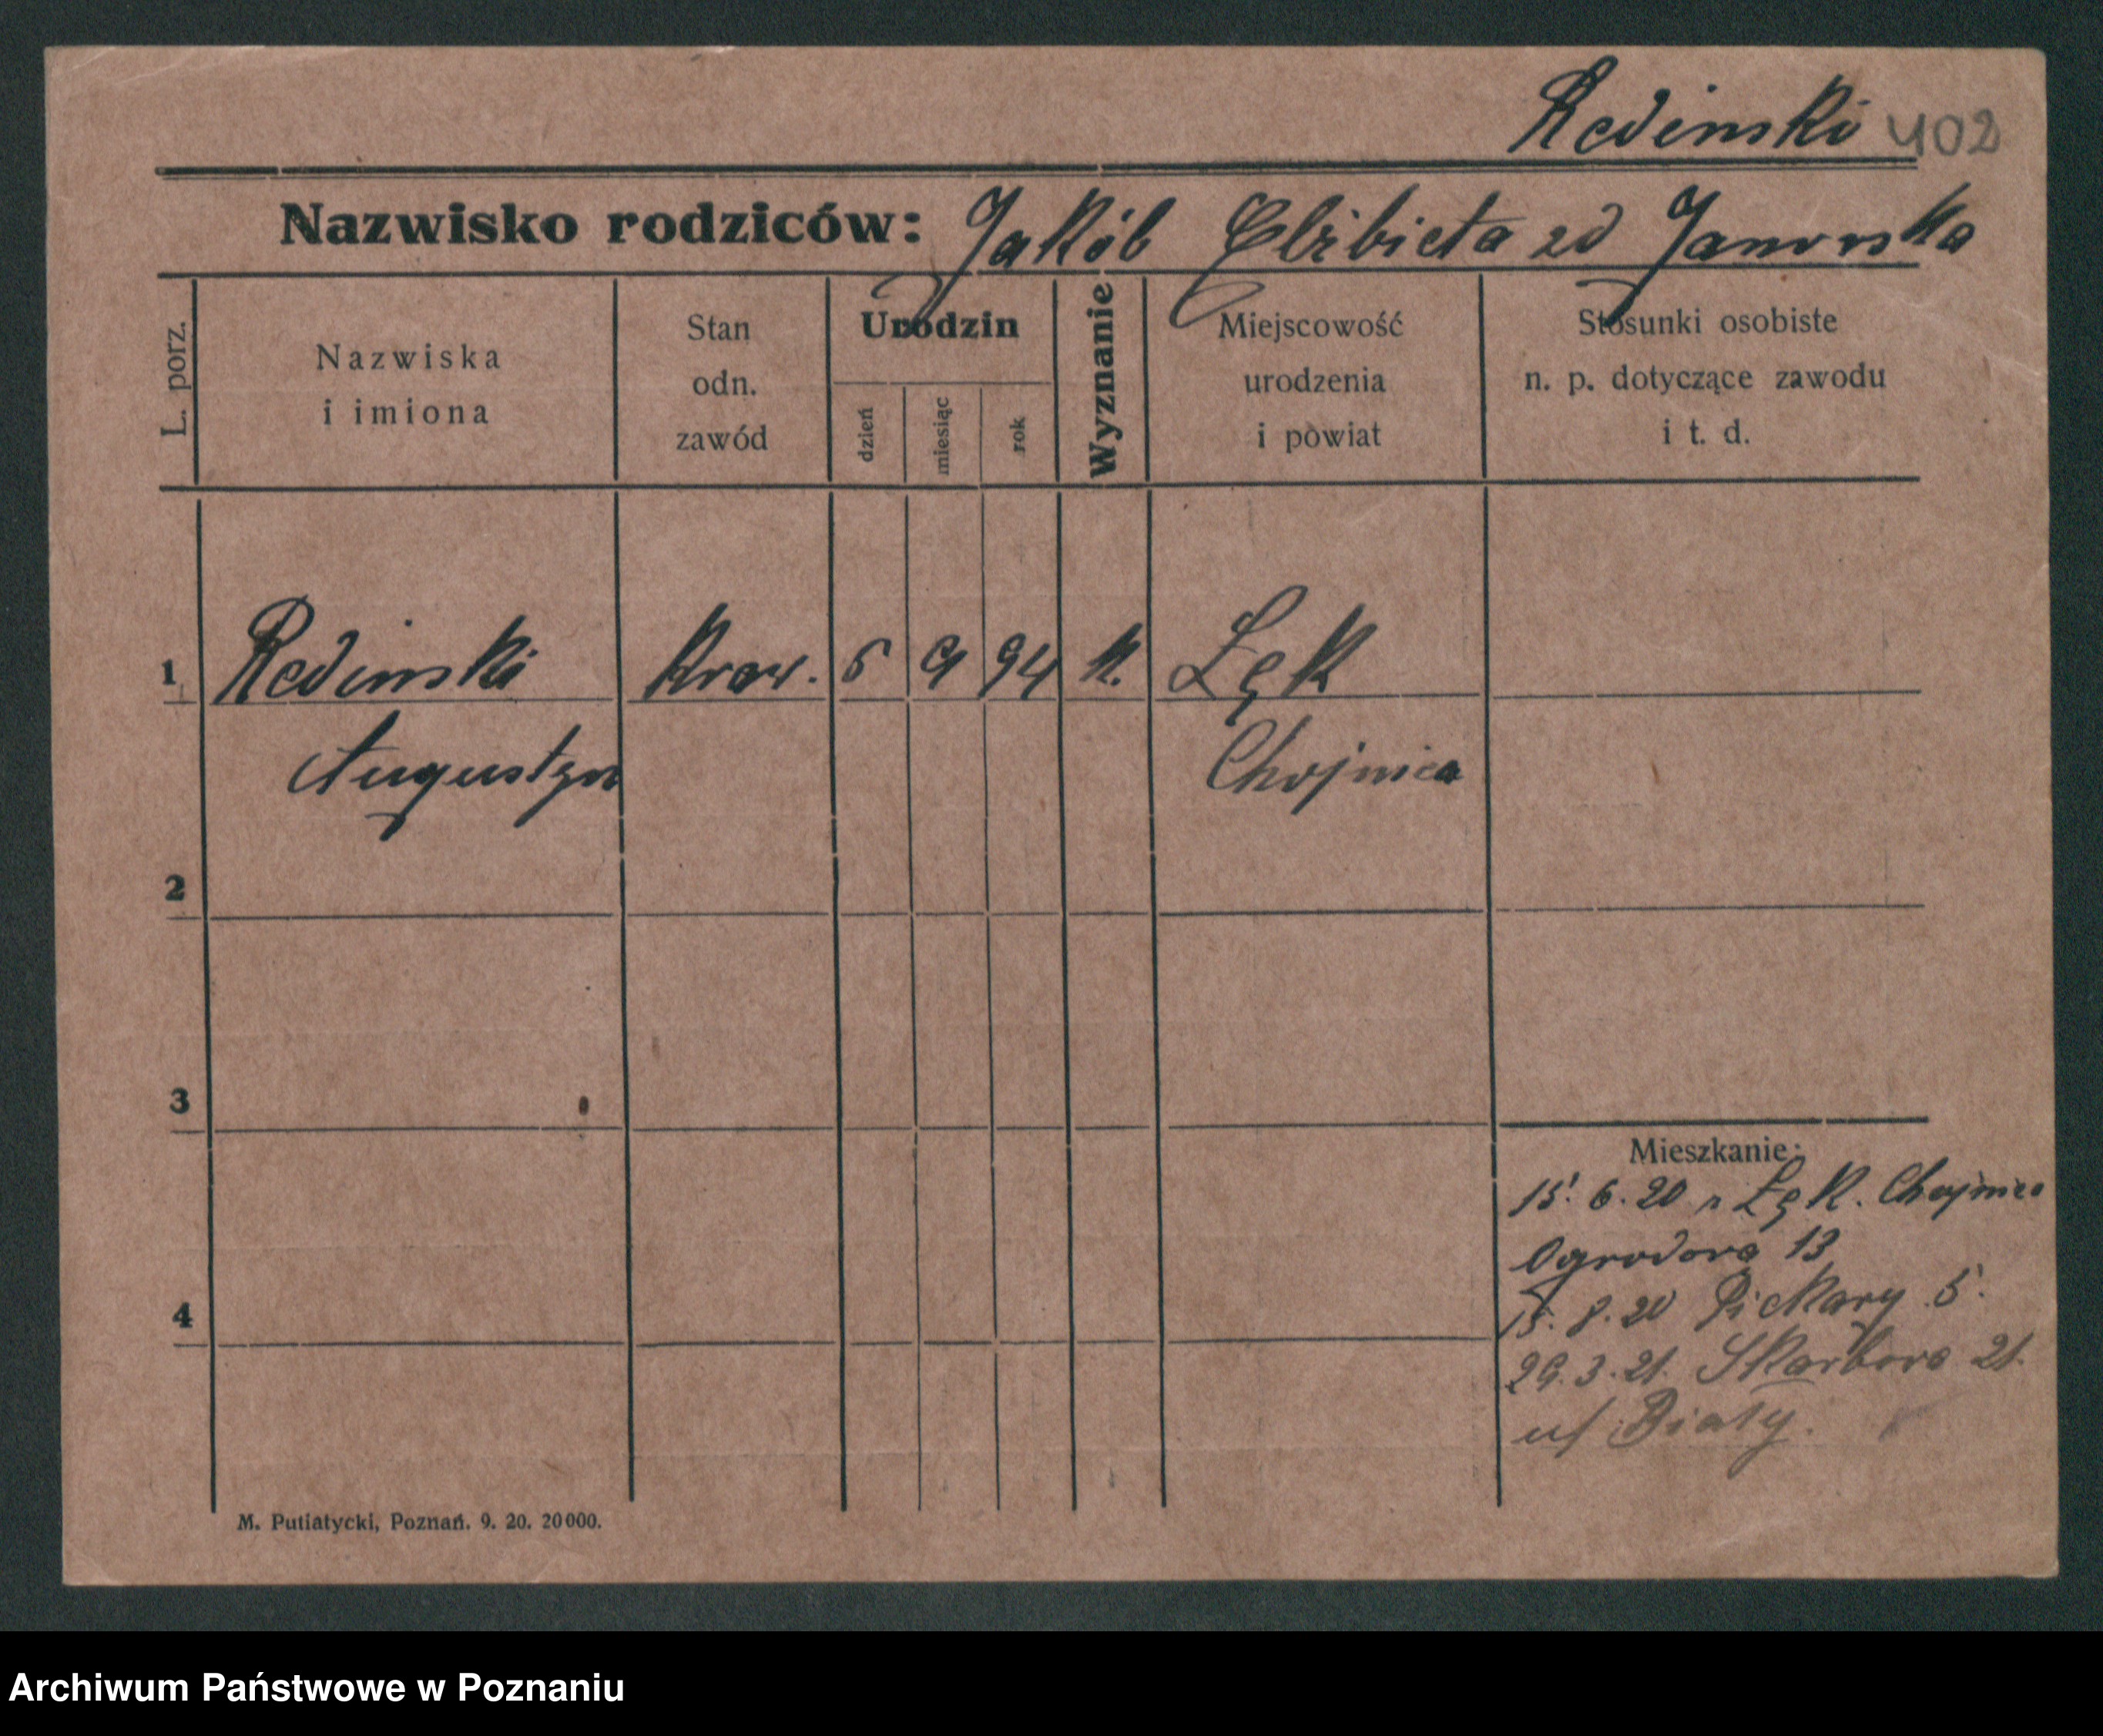 Redinski 402
Nazwisko rodziców: Jakób Elżbieta zd Janowska
L. porz.
Nazwiska
i imiona
Stan
odn.
zawód
Urodzin
dzień
miesiąc
rok
Wyznanie
Miejscowość
urodzenia
i powiat
Stosunki osobiste
n. p. dotyczące zawodu
i t. d.
1 Redinski Kraw. 5 9 94 k. Łęk
Augustyn Chojnica
2
3
Mieszkanie:
15. 6. 20 z Łęk. Chojnica
Ogrodowa 13
4
15. 8. 20 Piekary 5.
29. 3. 21. Skarbowa 21.
u/ Biały.
M. Putiatycki, Poznań. 9. 20. 20000.
Archiwum Państwowe w Poznaniu